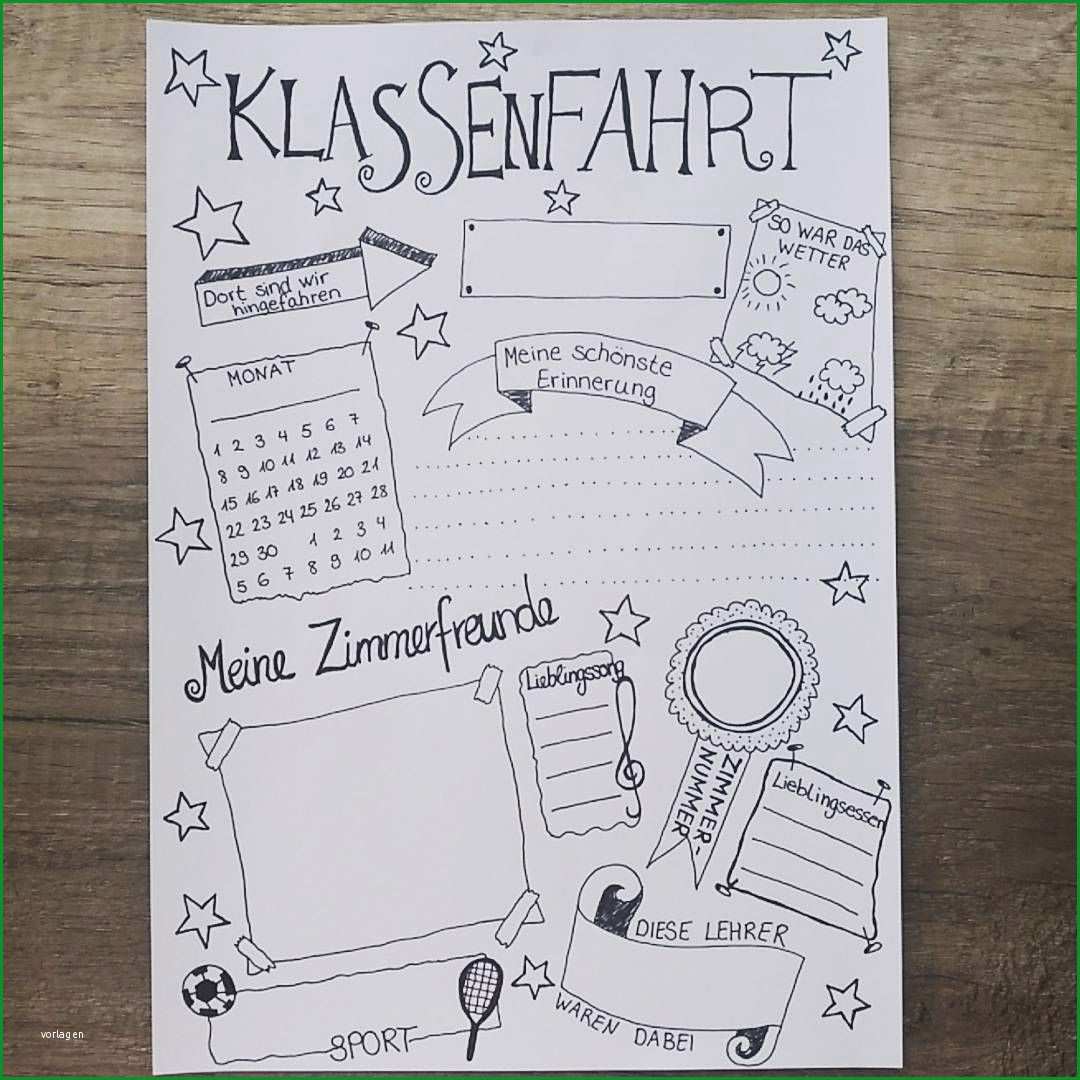 KLASSENFAHRT
Dort sind wir
hingefahren
SO WAR DAS
WETTER
MONAT
1 2 3 4 5 6 7
8 9 10 11 12 13 14
15 16 17 18 19 20 21
22 23 24 25 26 27 28
29 30 1 2 3 4
5 6 7 8 9 10 11
Meine schönste
Erinnerung
Meine Zimmerfreunde
Lieblingssong
ZIMMER-
NUMMER
Lieblingsessen
DIESE LEHRER
WAREN DABEI
SPORT
vorlagen